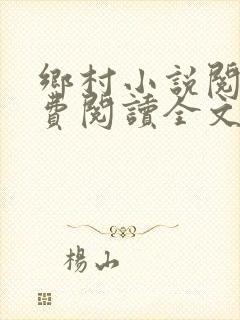 鄉村小說閱
費閱讀全文
楊山